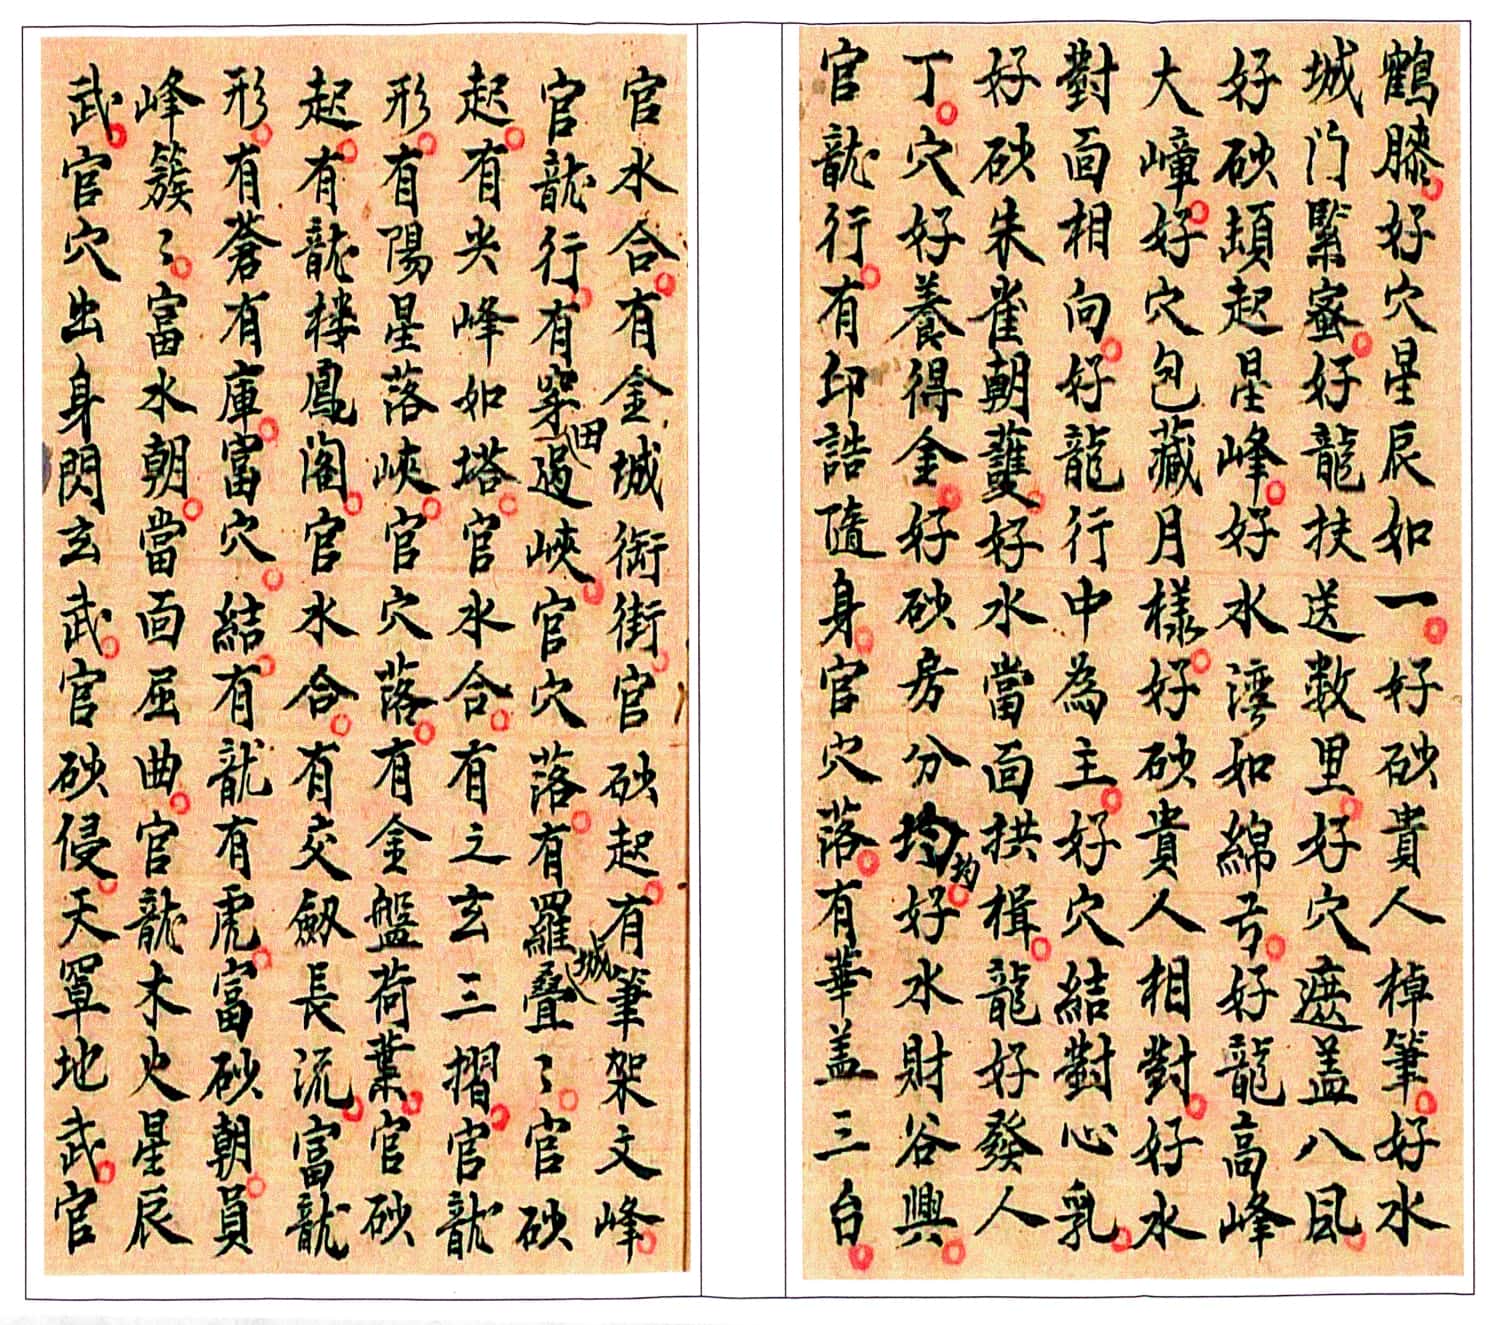 鶴膝好穴星辰如一好砂貴人棹筆好水
城门緊蜜好龍扶送数里好穴遮盖八風
好砂頓起星峰好水湾如綿弓好龍高峰
大嶂好穴包藏月樣好砂貴人相對好水
對面相向好龍行中為主好穴結對心乳
好砂朱雀朝雙好水當面拱楫龍好發人
丁穴好養得金好砂房分均好水財谷興
官龍行有印誥隨身官穴落有華盖三台
官水合有金城衙街官砂起有筆架文峰
官龍行有穿田過峽官穴落有羅城疊〻官砂
起有尖峰如塔官水合有之玄三摺官龍
形有陽星落峽官穴落有金盤荷葉官砂
起有龍樓鳳阁官水合有交劔長流富龍
形有蒼有庫富穴結有龍有虎富砂朝員
峰簇〻富水朝當面屈曲官龍木火星辰
武官穴出身閃玄武官砂侵天罩地武官